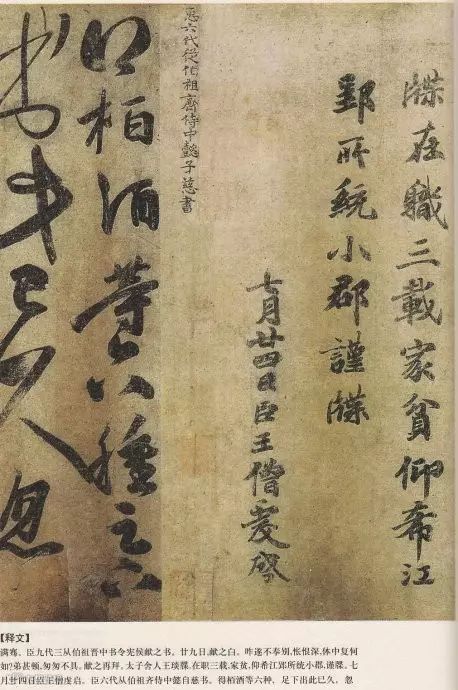 牒在職三載家貧仰希江
郢所統小郡謹牒
七月廿四日臣王僧虔啓
𢘑六代從伯祖齊侍中懿子慈書
得柏酒等六種足下
出此已久忽
【释文】
满骞。臣九代三从伯祖晋中书令宪侯献之书。廿九日,献之白。昨遂不奉别,怅恨深。体中复何
如?弟甚顿,匆匆不具。献之再拜。太子舍人王琰牒。在职三载,家贫,仰希江郢所统小郡,谨牒。七
月廿四日臣王僧虔启。臣六代从伯祖齐侍中懿自慈书。得柏酒等六种,足下出此已久,忽